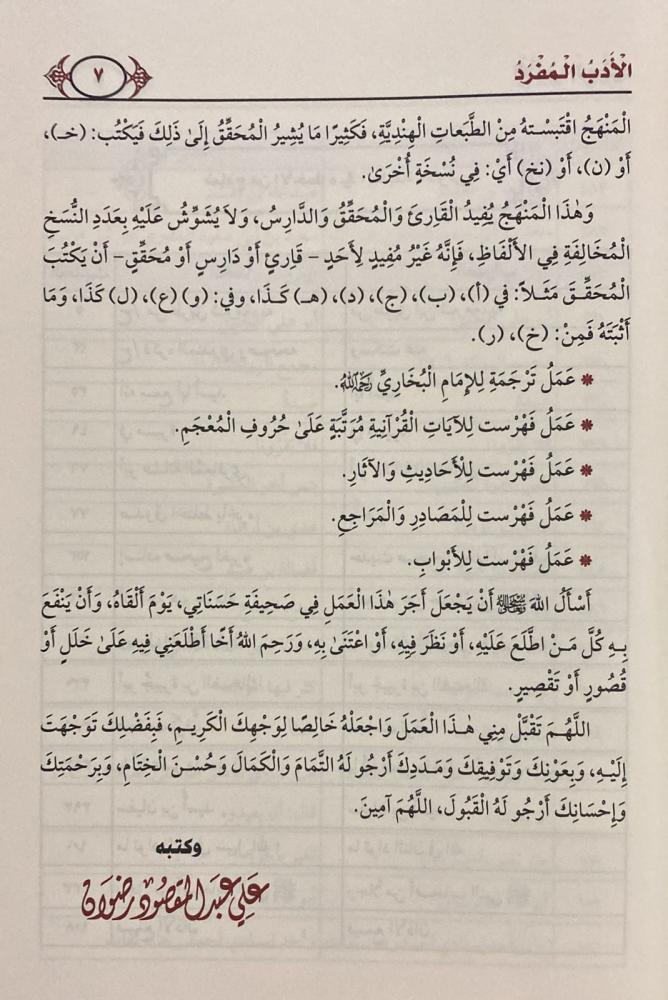 الْأَدَبُ الْمُفْرَدُ
٧
الْمَنْهَجُ اقْتَبَسْتهُ مِنْ الطَّبَعاتِ الْهِنْدِيَّةِ، فَكَثِيرًا مَا يُشِيرُ الْمُحَقِّقُ إِلَىٰ ذَلِكَ فَيَكْتُب: (خـ)،
أَوْ (ن)، أَوْ (نخ) أَيْ: فِي نُسْخَةٍ أُخْرَىٰ.
وَهَٰذَا الْمَنْهَجُ يُفِيدُ الْقَارِئَ وَالْمُحَقِّقُ وَالدَّارِسُ، وَلاَ يُشَوِّشُ عَلَيْهِ بِعَدَدِ النُّسَخِ
الْمُخَالِفَةِ فِي الْأَلْفَاظِ، فَإِنَّهُ غَيْرُ مُفِيدٍ لِأَحَدٍ - قَارِئٍ أَوْ دَارِسٍ أَوْ مُحَقِّقٍ - أَنْ يَكْتُبَ
الْمُحَقِّقَ مَثَلاً: في (أ)، (ب)، (ج)، (د)، (هـ) كَذَا، وفي: (و) (ع)، (ل) كَذَا، وَمَا
أَثْبَتَهُ فَمِنْ: (خ)، (ر).
* عَمَلُ تَرْجَمَةٍ لِلإِمَامِ الْبُخَارِيِّ رَحِمَهُ اللهُ.
* عَمَلُ فَهْرِست لِلآيَاتِ الْقُرْآنِيةِ مُرَتَّبَةٍ عَلَىٰ حُرُوفِ الْمُعْجَمِ.
* عَمَلُ فَهْرِست لِلْأَحَادِيثِ وَالآثَارِ.
* عَمَلُ فَهْرِست لِلْمَصَادِرِ وَالْمَرَاجِعِ.
* عَمَلُ فَهْرِست لِلأَبْوابِ.
أَسْأَلُ اللهَ أَنْ يَجْعَلَ أَجَرَ هَٰذَا الْعَمَلِ فِي صَحِيفَةِ حَسَنَاتِي، يَوْمَ أَلْقَاهُ، وَأَنْ يَنْفَعَ
بِهِ كُلَّ مَنْ اطَّلَعَ عَلَيْهِ، أَوْ نَظَرَ فِيهِ، أَوْ اعْتَنَىٰ بِهِ، وَرَحِمَ اللهُ أَخًا أَطْلَعَنِي فِيهِ عَلَىٰ خَلَلٍ أَوْ
قُصُورٍ أَوْ تَقْصِيرٍ.
اللَّهُمَّ تَقَبَّلْ مِنِي هَٰذَا الْعَمَلَ وَاجْعَلْهُ خَالِصًا لِوَجْهِكَ الْكَرِيمِ، فَبِفَضْلِكَ تَوَجْهَتَ
إِلَيْهِ، وَبِعَوْنِكَ وَتَوْفِيقِكَ وَمَدَدِكَ أَرْجُو لَهُ التَّمَامَ وَالْكَمَالَ وَحُسْنَ الْخِتَامِ، وَبِرَحْمَتِكَ
وَإِحْسَانِكَ أَرْجُو لَهُ الْقَبُولَ، اللَّهُمَ آمِينَ.
وكتبه
علي عبد المقصود رضوان